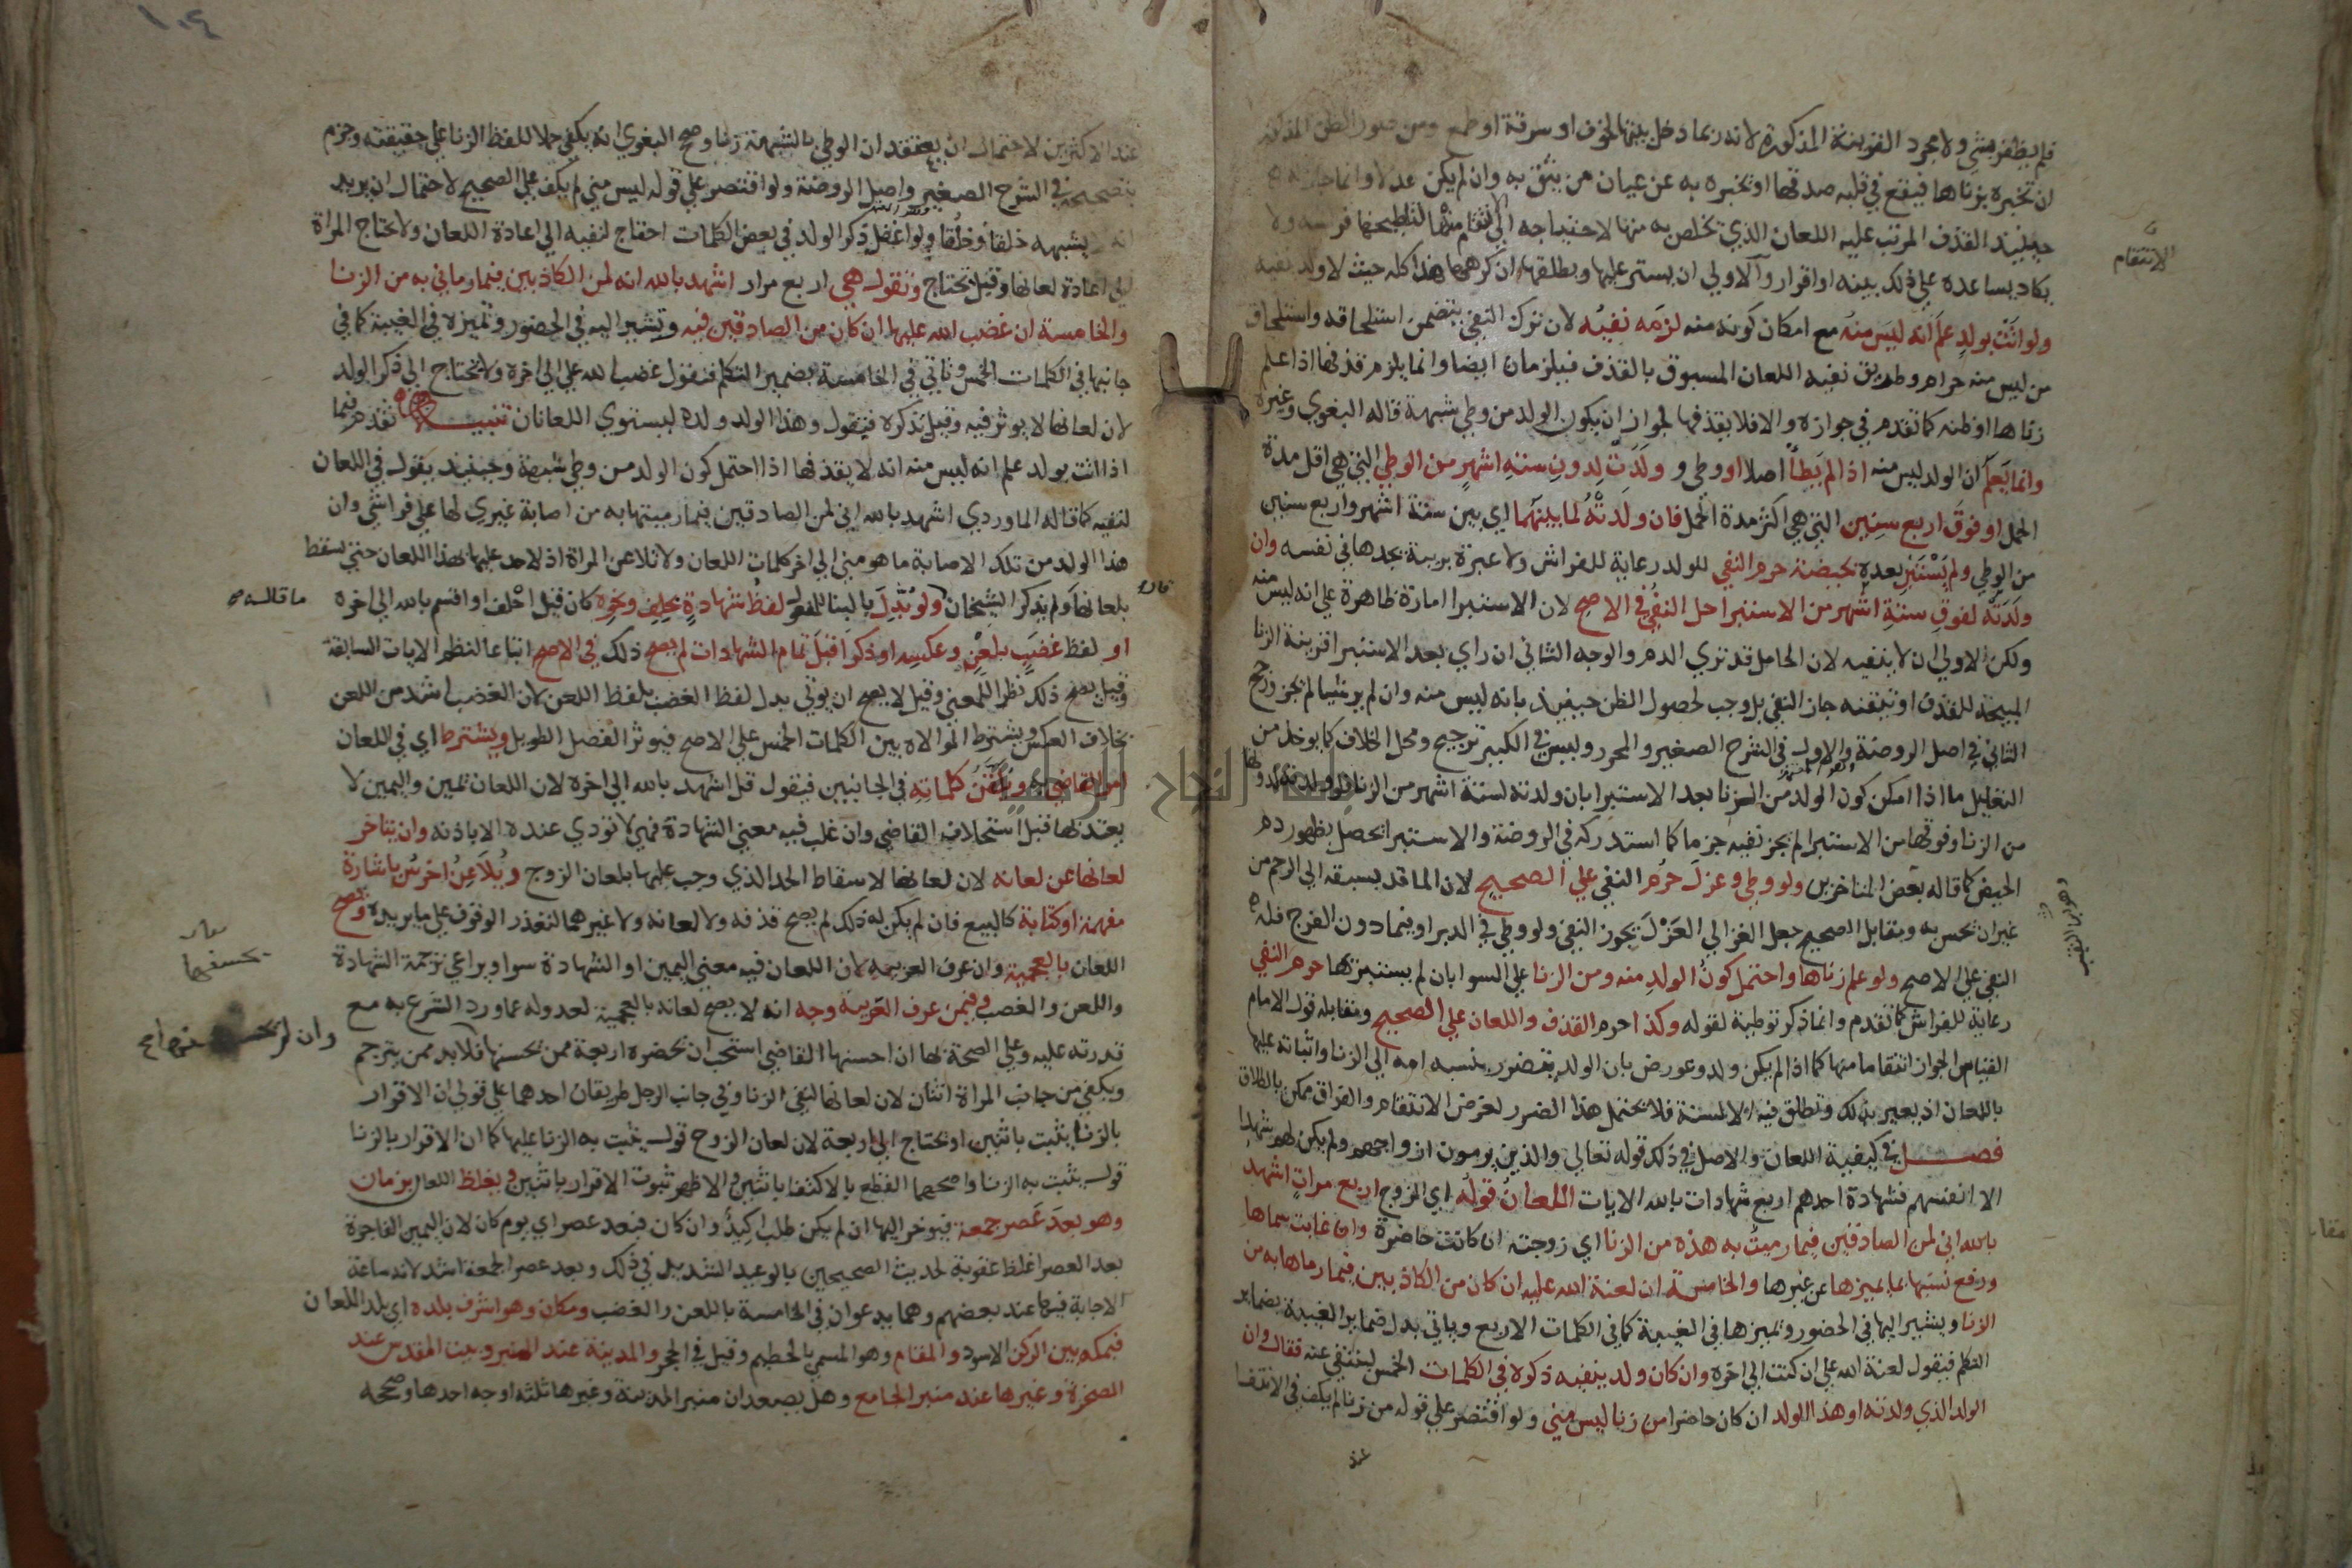 فلم يظفر بشي ولا مجرد القرينة المذكورة لانه ربما دخل بيتها لخوف او سرقة او طمع ومن صور الظن المذكور
ان تخبره بزناها فيقع في قلبه صدقها او تخبره به عن عيان من يثق به وان لم يكن عدلا وانما جاز له
حينيذ القذف المرتب عليه اللعان الذي تخلص به منها لاحتياجه الى الانتقام منها لتلطيخها فراشه ولا
يكاد يساعده على ذلك بينه او اقرار والاولي ان يستر عليها ويطلقها ان كرهها هذا كله حيث لا ولد ينفيه
ولو اتت بولد علم انه ليس منه مع امكان كونه منه لزمه نفيه لان ترك النفي يتضمن استلحاقه واستلحاق
من ليس منه حرام وطريق نفيه اللعان المسبوق بالقذف فيلزمان ايضا وانما يلزم قذفها اذا علم
زناها او ظنه كما تقدم في جوازه والا فلا يقذفها لجواز ان يكون الولد من وطي شبهة قاله البغوي وغيره
وانما يعلم ان الولد ليس منه اذا لم يطأ اصلا او وطي و ولدت لدون ستة اشهر من الوطي التي هي اقل مدة
الحمل او فوق اربع سنين التي هي اكثر مدة الحمل فان ولدته لما بينهما اي بين ستة اشهر واربع سنين
من الوطي ولم يستبر بعده بحيضة حرم النفي للولد رعاية للفراش ولا عبرة بريبة يجدها في نفسه وان
ولدته لفوق ستة اشهر من الاستبرا حل النفي في الاصح لان الاستبرا امارة ظاهرة على انه ليس منه
ولكن الاولي ان لا ينفيه لان الحامل قد تري الدم والوجه الثاني ان راي بعد الاستبرا قرينة الزنا
المبيحة للقذف او تيقنه جاز النفي بل وجب لحصول الظن حينيذ بانه ليس منه وان لم ير شيا لم يجز ورجح
الثاني في اصل الروضة والاول في الشرح الصغير والمحرر وليس في الكبير ترجيح ومحل الخلاف كما يوخذ من
التعليل ما اذا امكن كون الولد من الزنا بعد الاستبرا بان ولدته لستة اشهر من الزنا فلو ولدته لدونها
من الزنا وفوقها من الاستبرا لم يجز نفيه جزما كما استدركه في الروضة والاستبرا يحصل بظهور دم
الحيض كما قاله بعض المتاخرين ولو وطي وعزل حرم النفي علي الصحيح لان الما قد يسبقه الي الرحم من
غير ان يحس به ومقابل الصحيح جعل الغزالي العزل يجوز النفي ولو وطي في الدبر او فيما دون الفرج فله
النفي علي الاصح ولو علم زناها واحتمل كون الولد منه ومن الزنا علي السوا بان لم يستبرئها حرم النفي
رعاية للفراش كما تقدم وانما ذكر توطية لقوله وكذا حرم القذف واللعان علي الصحيح ومقابله قول الامام
القياس الجواز انتقاما منها كما اذا لم يكن ولد وعورض بان الولد يتضرر بنسبه امه الي الزنا واثباته عليها
باللعان اذ يعير بذلك وتطلق فيه الالسنة فلا يحتمل هذا الضرر لغرض الانتقام والفراق ممكن بالطلاق
فصل في كيفية اللعان والاصل في ذلك قوله تعالي والذين يرمون ازواجهم ولم يكن لهم شهدا
الا انفسهم فشهادة احدهم اربع شهادات بالله الايات اللعان قوله اي الزوج اربع مرات اشهد
بالله اني لمن الصادقين فيما رميت به هذه من الزنا اي زوجته ان كانت حاضرة وان غابت سماها
ورفع نسبها بما يميزها عن غيرها والخامسة ان لعنة الله عليه ان كان من الكاذبين فيما رماها به من
الزنا ويشير اليها في الحضور وتميزها في الغيبة كما في الكلمات الاربع وياتي بدل ضماير الغيبة بضماير
التكلم فيقول لعنة الله علي ان كنت الي اخره وان كان ولد ينفيه ذكره في الكلمات الخمس لينتفي عنه فقال وان
الولد الذي ولدته او هذا الولد ان كان حاضرا من زنا ليس مني ولو اقتصر علي قوله من زنا لم يكف في الانتفا
عند
الانتقام
١٠٤
عند الاكثرين لاحتمال ان يعتقد ان الوطي بالشبهة زنا وصحح البغوي انه يكفي حملا للفظ الزنا علي حقيقته وجزم
بتصحيحه في الشرح الصغير واصل الروضة ولو اقتصر علي قوله ليس مني لم يكف علي الصحيح لاحتمال ان يريد
انه لا يشبهه خلقا وخلقا ولو اغفل ذكر الولد في بعض الكلمات احتاج لنفيه الي اعادة اللعان ولا تحتاج المراة
الي اعادة لعانها وقيل تحتاج وتقول هي اربع مرار اشهد بالله انه لمن الكاذبين فيما رماني به من الزنا
والخامسة ان غضب الله عليها ان كان من الصادقين فيه وتشير اليه في الحضور وتميزه في الغيبة كما في
جانبها في الكلمات الخمس وتاتي في الخامسة بضمير التكلم فتقول غضب الله علي الي اخره ولا تحتاج الي ذكر الولد
لان لعانها لا يوثر فيه وقيل تذكره فتقول وهذا الولد ولده ليستوي اللعانان تنبيه تقدم فيما
اذا اتت بولد علم انه ليس منه انه لا يقذفها اذا احتمل كون الولد من وطي شبهة وحينيذ يقول في اللعان
لنفيه كما قاله الماوردي اشهد بالله اني لمن الصادقين فيما رميتها به من اصابة غيري لها علي فراشي وان
هذا الولد من تلك الاصابة ما هو مني الي اخر كلمات اللعان ولا تلاعن المراة اذ لا حد عليها بهذا اللعان حتي يسقط
بلعانها ولم يذكر الشيخان ولو بُدل بالبنا للمفعول لفظ شهادة بحلف ونحوه كان قيل احلف او اقسم بالله الي اخره
ما قاله
او لفظ غضب بلعن وعكسه او ذكرا قبل تمام الشهادات لم يصح ذلك في الاصح اتباعا لنظم الايات السابقة
وقيل يصح ذلك نظرا للمعني وقيل لا يصح ان يوتي بدل لفظ الغضب بلفظ اللعن لان الغضب اشد من اللعن
بخلاف العكس ويشترط الموالاة بين الكلمات الخمس علي الاصح فيوثر الفصل الطويل ويشترط اي في اللعان
امر القاضي به ويلقن كلماته في الجانبين فيقول قل اشهد بالله الي اخره لان اللعان يمين واليمين لا
يعتد بها قبل استحلاف القاضي وان غلب فيه معني الشهادة فهي لا تودي عنده الا باذنه وان يتاخر
لعانها عن لعانه لان لعانها لاسقاط الحد الذي وجب عليها بلعان الزوج ويلاعن اخرس باشارة
مفهمة او كتابة كالبيع فان لم يكن له ذلك لم يصح قذفه ولا لعانه ولا غيرهما لتعذر الوقوف علي ما يريده ويصح
اللعان بالعجمية وان عرف العربية لان اللعان فيه معني اليمين او الشهادة سوا ويراعي ترجمة الشهادة
واللعن والغضب وفيمن عرف العربية وجه انه لا يصح لعانه بالعجمية لعدوله عما ورد الشرع به مع
قدرته عليه وعلي الصحة لها ان احسنها القاضي استحب ان يحضره اربعة ممن يحسنها فلا بد ممن يترجم
يحسنها
ويكفي من جانب المراة اثنان لان لعانها لنفي الزنا وفي جانب الرجل طريقان احدهما علي قولي ان الاقرار
بالزنا يثبت باثنين او يحتاج الي اربعة لان لعان الزوج قول يثبت به الزنا عليها كما ان الاقرار بالزنا
قول يثبت به الزنا واصحهما القطع بالاكتفا باثنين في الاظهر ثبوت الاقرار باثنين ويغلظ اللعان بزمان
وهو بعد عصر جمعة فيوخر اليها ان لم يكن طلب اكيد وان كان فبعد عصر اي يوم كان لان اليمين الفاجرة
بعد العصر اغلظ عقوبة لحديث الصحيحين بالوعيد الشديد في ذلك وبعد عصر الجمعة اشد لانه ساعة
الاجابة فيها عند بعضهم وهما يدعوان في الخامسة باللعن والغضب ومكان وهو اشرف بلده اي بلد اللعان
فبمكه بين الركن الاسود والمقام وهو المسمي بالحطيم وقيل في الحجر والمدينة عند المنبر وبيت المقدس عند
الصخرة وغيرها عند منبر الجامع وهل يصعدان منبر المدينة وغيرها ثلثة اوجه احدها وصححه